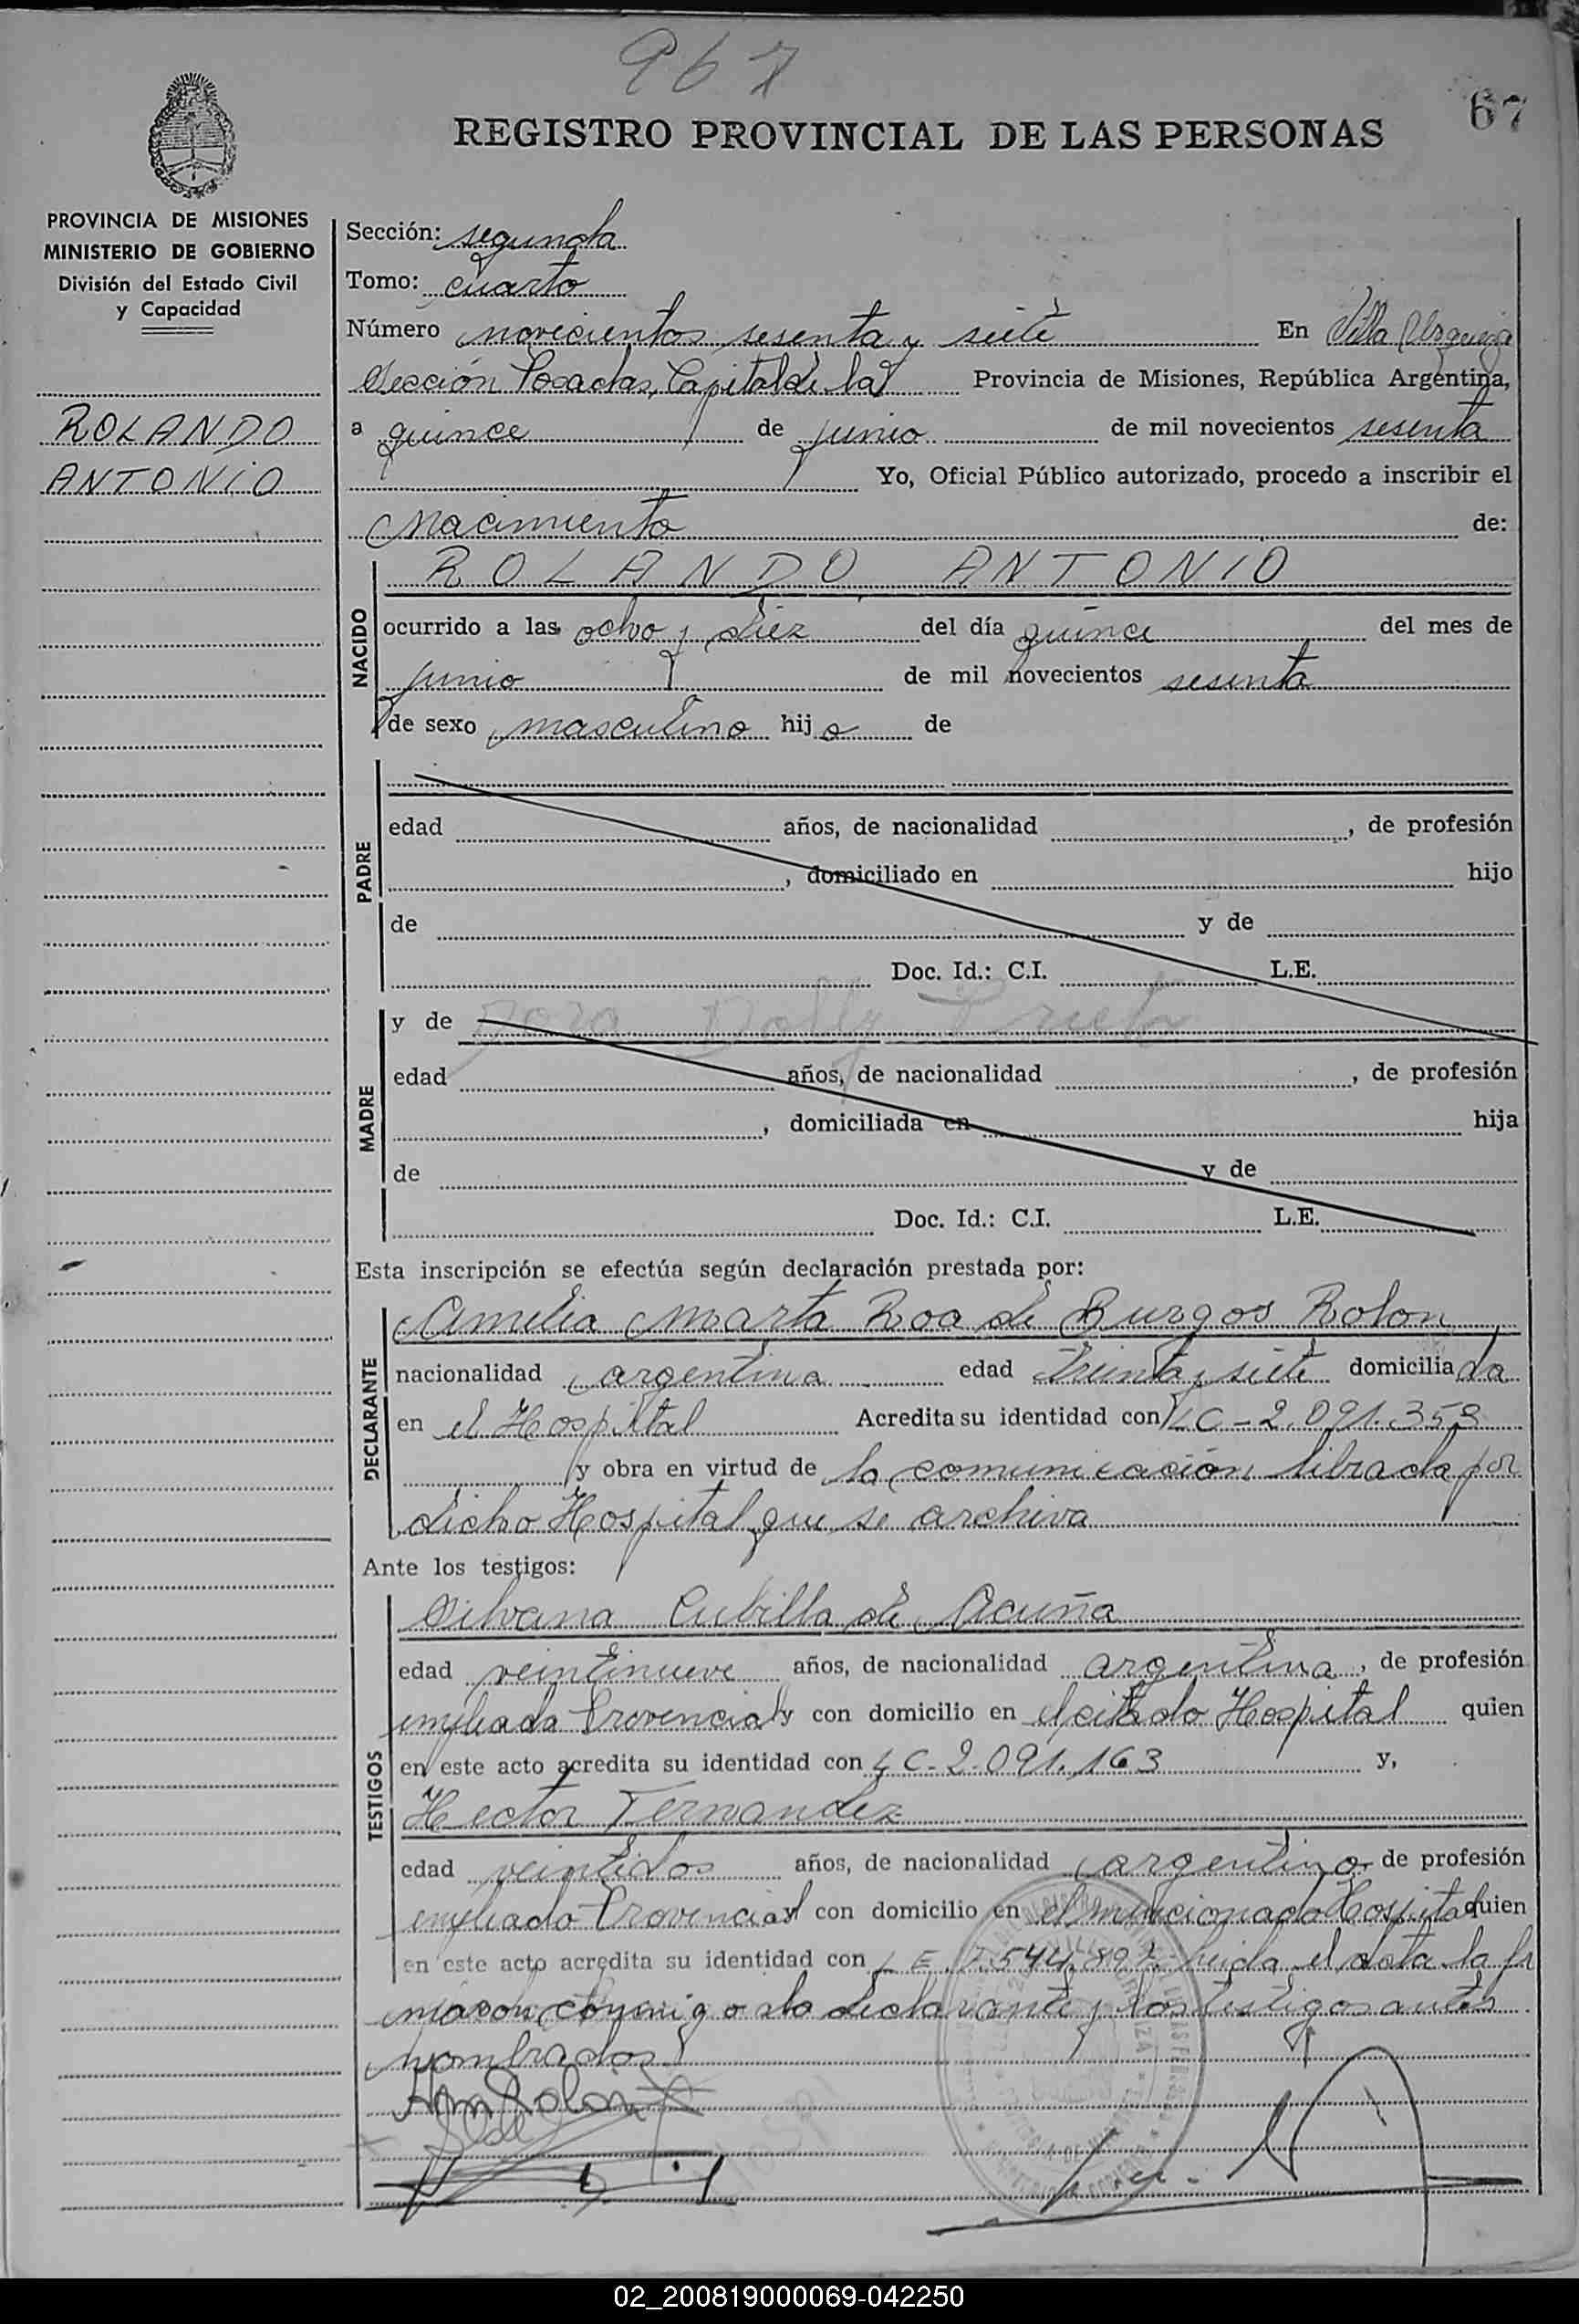 967
67
REGISTRO PROVINCIAL DE LAS PERSONAS
PROVINCIA DE MISIONES
MINISTERIO DE GOBIERNO
División del Estado Civil
y Capacidad
ROLANDO
ANTONIO
Sección: segunda
Tomo: cuarto
Número novecientos sesenta y siete En Villa Urquiza
Sección Posadas, Capital de la Provincia de Misiones, República Argentina,
a quince de junio de mil novecientos sesenta
Yo, Oficial Público autorizado, procedo a inscribir el
Nacimiento de:
NACIDO
ROLANDO ANTONIO
ocurrido a las ocho y diez del día quince del mes de
junio de mil novecientos sesenta
de sexo masculino hijo de
PADRE
edad años, de nacionalidad , de profesión
, domiciliado en hijo
de y de
Doc. Id.: C.I. L.E.
MADRE
y de Dora Dolly
edad años, de nacionalidad , de profesión
, domiciliada en hija
de y de
Doc. Id.: C.I. L.E.
Esta inscripción se efectúa según declaración prestada por:
DECLARANTE
Amelia Marta Roa de Burgos Rolon
nacionalidad argentina edad treinta y siete domiciliada
en el Hospital Acredita su identidad con LC-2.091.353
y obra en virtud de la comunicación librada por
dicho Hospital que se archiva
Ante los testigos:
TESTIGOS
Silvana Cubilla de Acuña
edad veintinueve años, de nacionalidad argentina, de profesión
empleada Provincial y con domicilio en el citado Hospital quien
en este acto acredita su identidad con LC-2.091.163 y,
Hector Fernandez
edad veintidos años, de nacionalidad argentino de profesión
empleado Provincial y con domicilio en el mencionado Hospital quien
en este acto acredita su identidad con LE 7.544.892 leida el acta la fir
maron conmigo la declarante y los testigos antes
nombrados
02_200819000069-042250